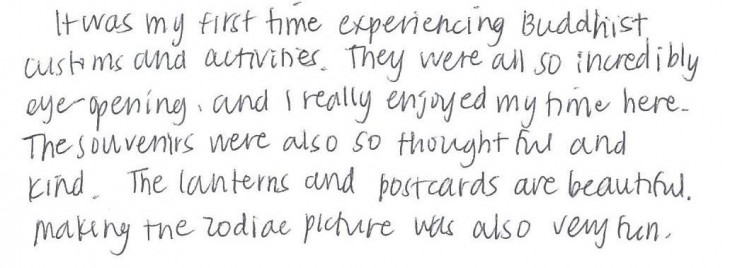 It was my first time experiencing Buddhist
customs and activities. They were all so incredibly
eye-opening, and I really enjoyed my time here.
The souvenirs were also so thoughtful and
kind. The lanterns and postcards are beautiful.
making the zodiac picture was also very fun.